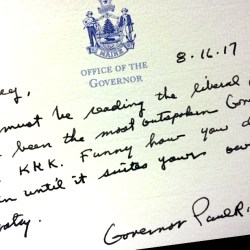 MAINE
OFFICE OF THE
GOVERNOR
8-16-17
must be reading the liberal
been the most outspoken Gov
KKK. Funny how you d
until it suites yours ow
Governor Paul R.